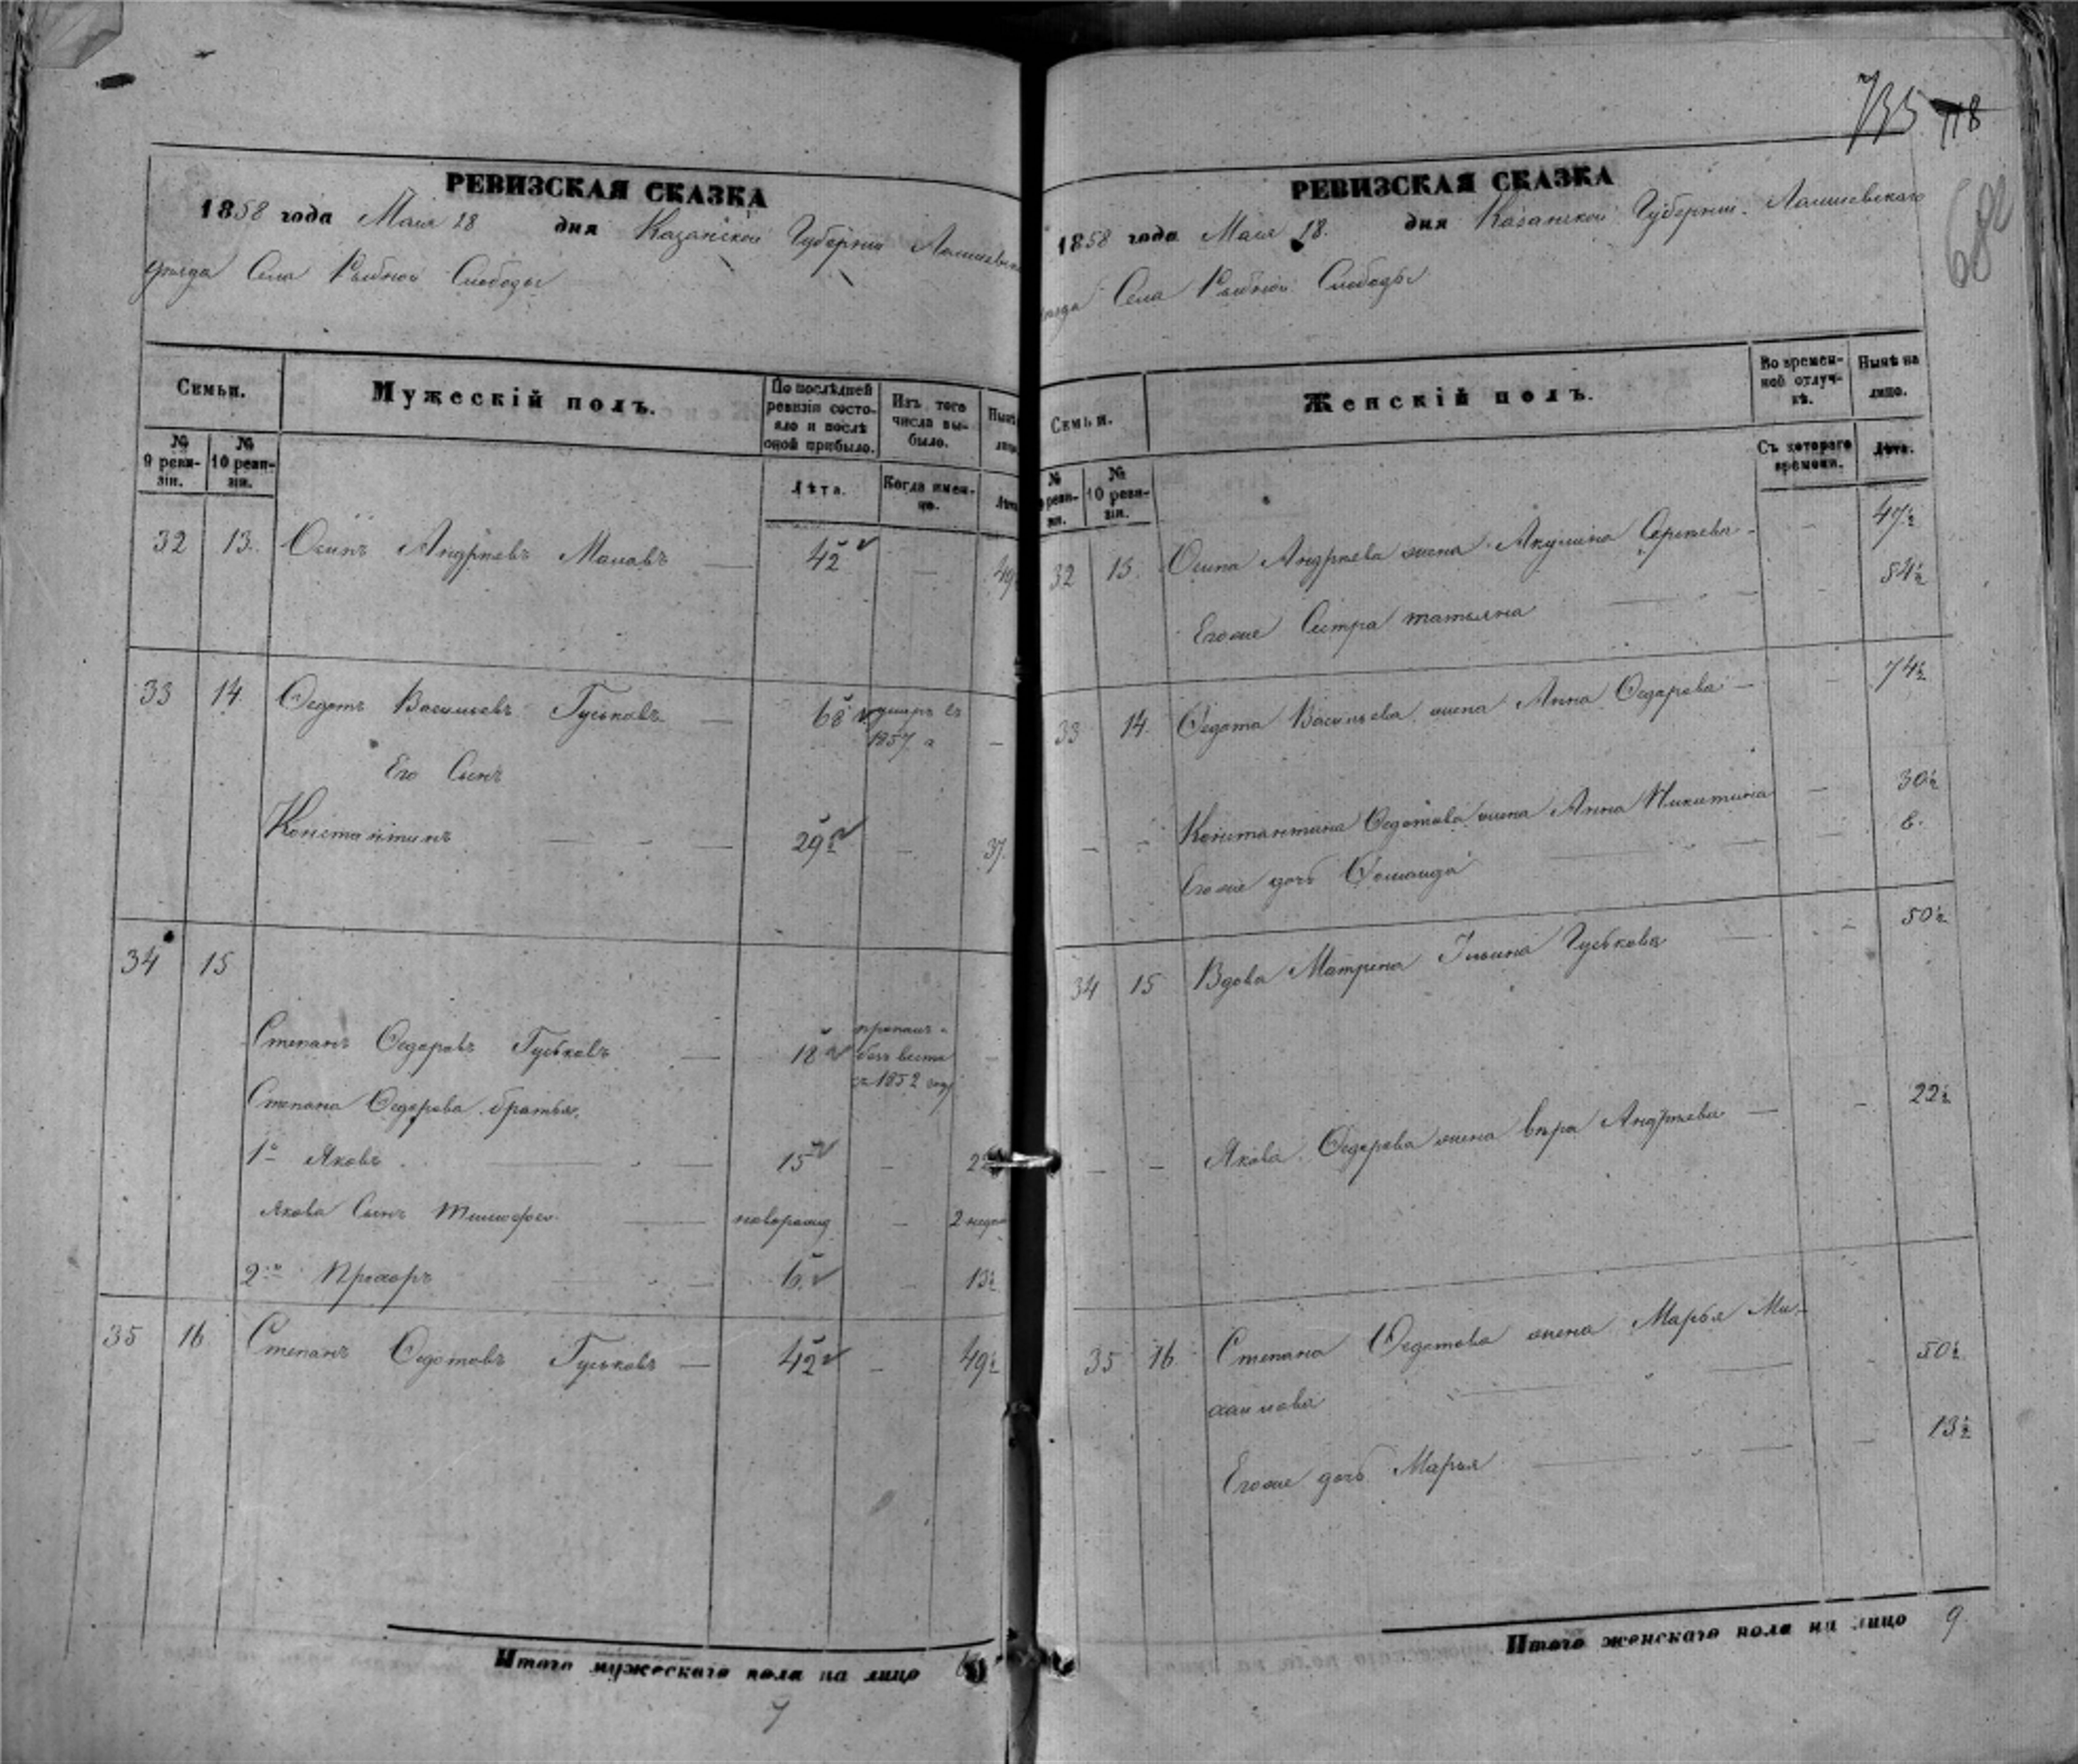 РЕВИЗСКАЯ СКАЗКА
1858 года Маія 18 дня Казанской Губерніи Лаишевска
уѣзда Села Рыбной Слободы
Семьи.
Мужескій полъ.
По послѣдней ревизіи состояло и послѣ оной прибыло.
Изъ того числа выбыло.
Нын
лиц
№ 9 ревизіи.
№ 10 ревизіи.
Лѣта.
Когда именно.
Лѣта
32 13. Осипъ Андреевъ Малавъ — 42 — 49
33 14. Ѳедотъ Васильевъ Гуськавъ — 68 умеръ въ 1857 —
Его Сынъ
Константинъ — 29½ — 37.
34 15
Степанъ Ѳедаравъ Гуськавъ — 18 пропалъ безъ вести въ 1852 году —
Степана Ѳедарава братья.
1й Якавъ — 15 — 22
Якова Сынъ Тимофей — наворожд — 2 неде
2й Прохоръ — 6 — 13½
35 16 Степанъ Ѳедотовъ Гуськавъ — 42 — 49½
Итого мужескаго пола на лицо
7
735 118
682
РЕВИЗСКАЯ СКАЗКА
1858 года Маія 18. дня Казанской Губерніи Лаишевскаго
уѣзда Села Рыбной Слободы
Семьи.
Женскій полъ.
Во временной отлучкѣ.
Нынѣ на лицо.
№ ревизіи.
№ 10 ревизіи.
Съ котораго времени.
Лѣта.
32 13. Осипа Андреева жена Акулина Сергеева — — 47½
Егоже Сестра татьяна — — 54½
33 14. Ѳедота Васильева жена Анна Ѳедарова — — 74½
— — Константина Ѳедотова жена Анна Никитина — 30½
Егоже дочь — — 6.
34 15 Вдова Матрена Ильина Гуськова — — 50½
— — Якова Ѳедарова жена Вѣра Андреева — — 22½
35 16 Степана Ѳедотова жена Марья Ми-
хаилова — — 50½
Егоже дочь Марья — — 13½
Итого женскаго пола на лицо 9